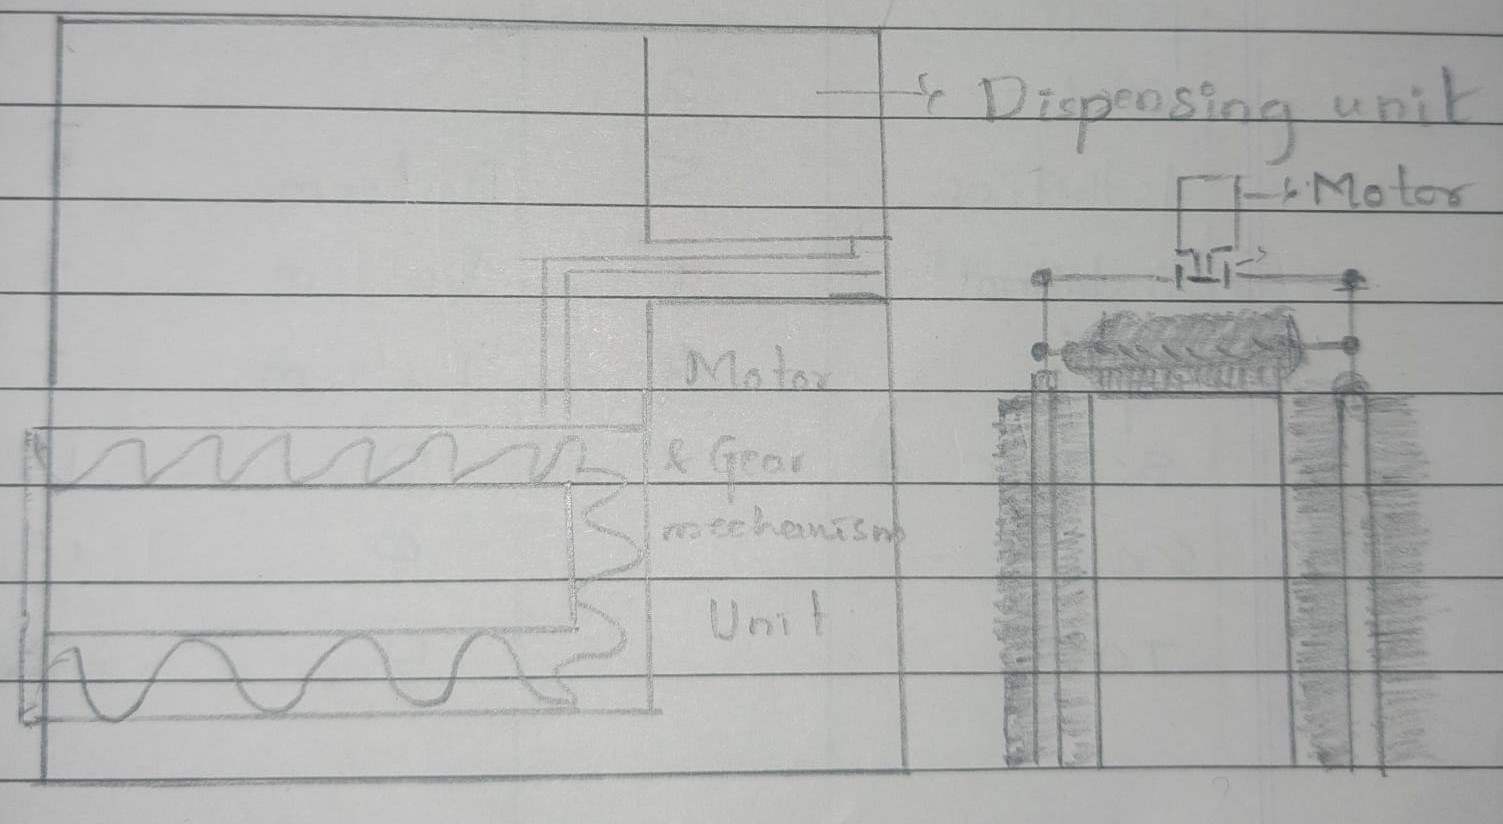 Dispensing unit
Motor
Motor
& Gear
mechanism
Unit